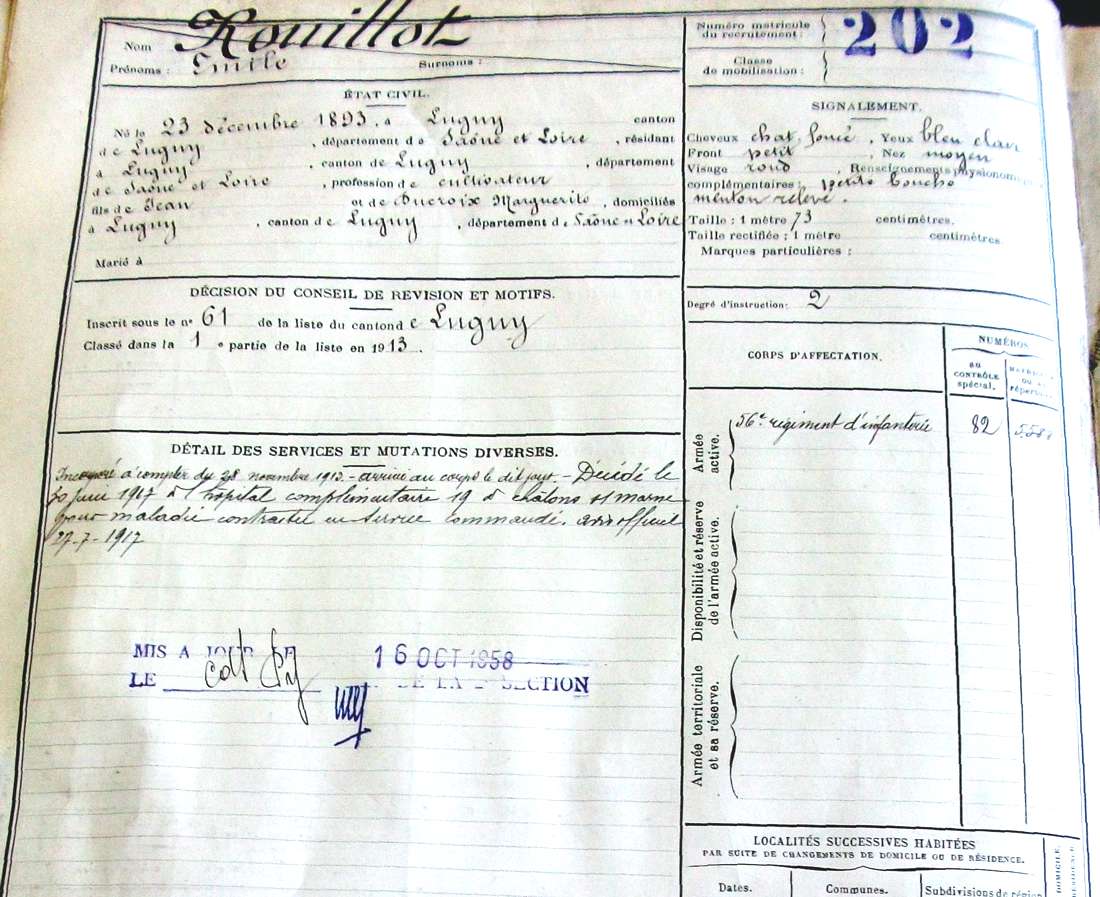 Nom Rouillot
Prénoms : Emile Surnoms :
Numéro matricule du recrutement : 202
Classe de mobilisation :
ÉTAT CIVIL.
Né le 23 décembre 1893, à Lugny canton
de Lugny , département de Saône et Loire , résidant
à Lugny , canton de Lugny , département
de Saône et Loire , profession de cultivateur
fils de Jean et de Ducroix Marguerite , domiciliés
à Lugny , canton de Lugny , département de Saône et Loire
Marié à
SIGNALEMENT.
Cheveux chat. foncé , Yeux bleu clair
Front petit , Nez moyen
Visage rond , Renseignements physionom
complémentaires : petite bouche
menton relevé .
Taille : 1 mètre 73 centimètres.
Taille rectifiée : 1 mètre centimètres
Marques particulières :
Degré d'instruction : 2
DÉCISION DU CONSEIL DE REVISION ET MOTIFS.
Inscrit sous le nº 61 de la liste du canton de Lugny
Classé dans la 1 e partie de la liste en 1913 .
DÉTAIL DES SERVICES ET MUTATIONS DIVERSES.
Incorporé à compter du 28 novembre 1913. - arrivé au corps le dit jour. - Décédé le
juin 1917 à l'hôpital complémentaire 19 à châlons s/ marne
pour maladie contractée en service commandé. avis officiel
27-7-1917
MIS A JOUR
16 OCT 1958
LE DE LA SECTION
CORPS D'AFFECTATION.
NUMÉROS
au CONTRÔLE spécial.
Armée active.
56e régiment d'infanterie 82
Disponibilité et réserve de l'armée active.
Armée territoriale et sa réserve.
LOCALITÉS SUCCESSIVES HABITÉES
PAR SUITE DE CHANGEMENTS DE DOMICILE OU DE RÉSIDENCE.
Dates. Communes. Subdivisions de région